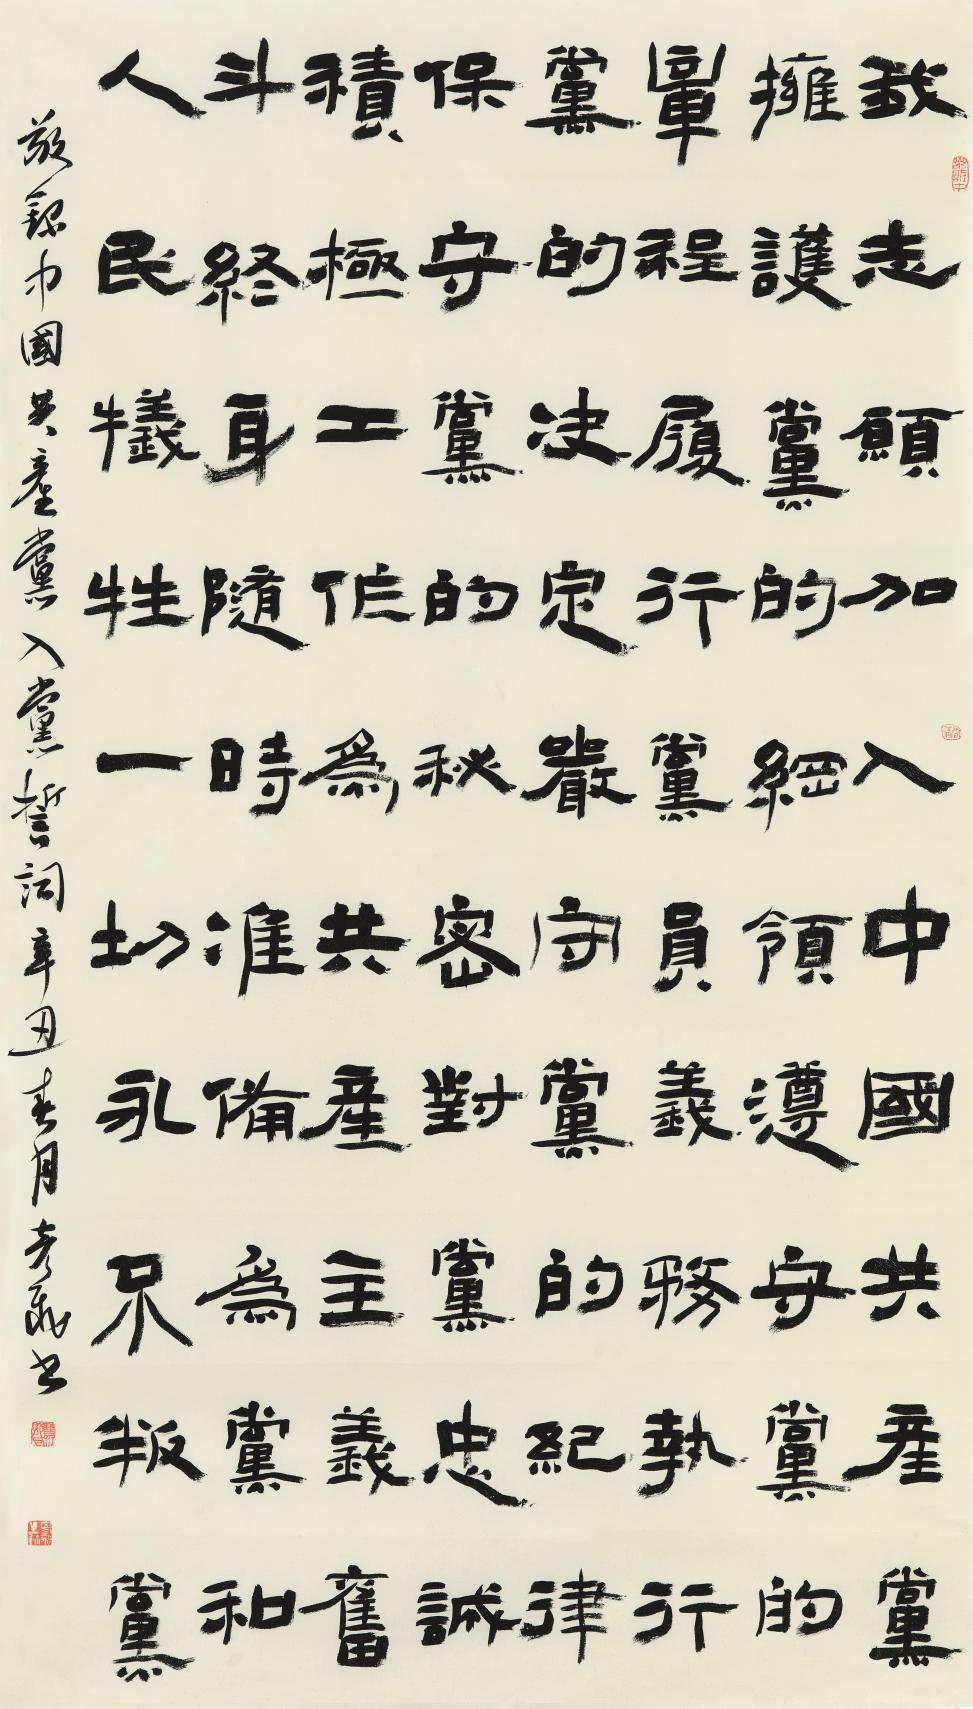 我志願加入中國共産黨
擁護黨的綱領遵守黨的
章程履行黨員義務執行
黨的决定嚴守黨的紀律
保守黨的秘密對黨忠誠
積極工作爲共産主義奮
斗終身隨時准備爲黨和
人民犧牲一切永不叛黨
敬録中國共産黨入黨誓詞辛丑春月